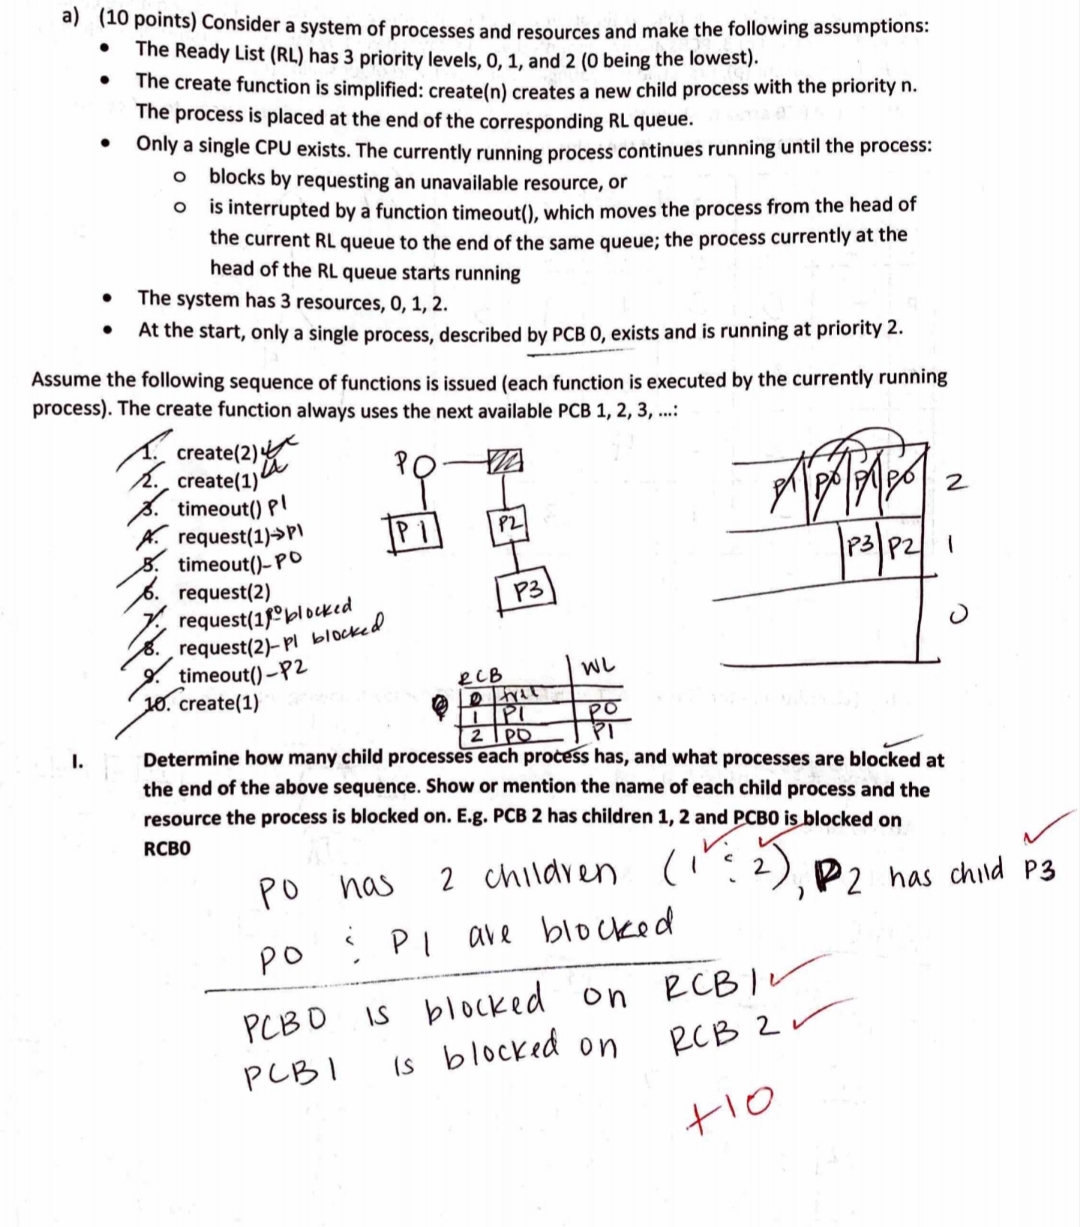 a) (10 points) Consider a system of processes and resources and make the following assumptions:
• The Ready List (RL) has 3 priority levels, 0, 1, and 2 (0 being the lowest).
• The create function is simplified: create(n) creates a new child process with the priority n.
The process is placed at the end of the corresponding RL queue.
• Only a single CPU exists. The currently running process continues running until the process:
o blocks by requesting an unavailable resource, or
o is interrupted by a function timeout(), which moves the process from the head of
the current RL queue to the end of the same queue; the process currently at the
head of the RL queue starts running
• The system has 3 resources, 0, 1, 2.
• At the start, only a single process, described by PCB 0, exists and is running at priority 2.
Assume the following sequence of functions is issued (each function is executed by the currently running
process). The create function always uses the next available PCB 1, 2, 3, ...:
1. create(2)
2. create(1)
3. timeout() P1
4. request(1)→P1
5. timeout()-P0
6. request(2)
7. request(1) P0 blocked
8. request(2)-P1 blocked
9. timeout()-P2
10. create(1)
P0
P1
P2
P3
P1 P0 P1 P0 2
P3 P2 1
0
RCB WL
0
1 P1 P0
2 P0 P1
I. Determine how many child processes each process has, and what processes are blocked at
the end of the above sequence. Show or mention the name of each child process and the
resource the process is blocked on. E.g. PCB 2 has children 1, 2 and PCB0 is blocked on
RCB0
P0 has 2 children (1 & 2), P2 has child P3
P0 & P1 are blocked
PCB0 is blocked on RCB1
PCB1 is blocked on RCB 2
+10